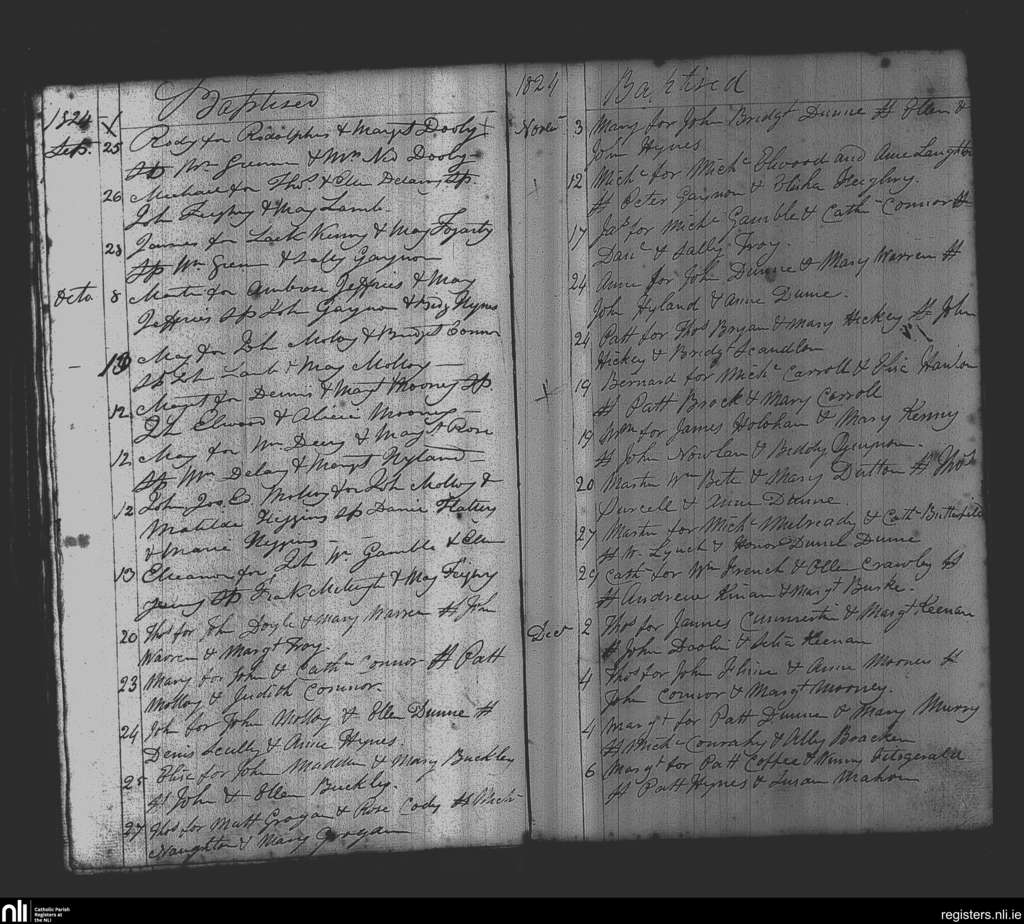 Baptised
1824
Sep. 25 Rody for Rodolphus & Margt Dooly
Sp Wm Green & Mrs Dooly
26 Michael for Thos & Ellen Delany Sp
Joh Feighry & May Lamb
23 James for Lack Kenny & May Fogarty
Sp Wm Green & Sally Gaynon
Octo 8 Martin for Ambrose Jeffries & May
Jeffries Sp Joh Gaynor & Hynes
10 May for Joh Moloy & Bridget Connor
Sp Joh Lamb & May Molloy
12 Margt for Dennis & Margt Mooney Sp
Joh Elwood & Alicia Mooney
12 May for Wm Deey & May
Sp Wm Delany & Margt Hyland
12 Joh Molloy for Joh Molloy &
Matilda Heppins Sp Daniel Flattery
& Maria Heppins
13 Eleanor for Joh Wm Gamble & Ellen
Sp Frak & May Feighry
20 Thos for John Doyle & Mary Warren Sp John
Warren & Margt Troy.
23 Mary for John & Cathn Connor Sp Patt
Molloy & Judith Connor.
24 Joh for John Molloy & Ellen Dunne Sp
Denis Scully & Anne Hynes.
25 Elisa for John Madden & Mary Buckley
Sp John & Ellen Buckley.
27 Thos for Matt Grogan & Rose Cody Sp Mich
Naughton & Mary Grogan
1824 Baptised
Novr 3 Mary for John Bridgt Dunne Sp Ellen &
John Hynes
12 Michl for Michl Elwood and Anne Laughton
Sp Peter Gaynon & Elisha Heighny.
17 Jas for Michl Gamble & Cathn Connor Sp
Danl & Sally Troy.
24 Anne for John Dunne & Mary Warren Sp
John Hyland & Anne Dunne.
24 Patt for Thos Bryan & Mary Hickey Sp John
Hickey & Bridgt Scandlon
19 Bernard for Michl Carroll & Elisa Hanlon
Sp Patt Brock & Mary Carroll
19 Wm for James Holohan & Mary Kenny
Sp John Nowlan & Biddy
20 Martin Wm Bette & Mary Dutton Sp Thos
Purcell & Anne Dunne
27 Martin for Michl Mulready & Cathn Butterfield
Sp W. Lynch & Honor Dunne
29 Cathn for Wm French & Ellen Crawley Sp
Sp Andrew Kinan & Margt Burke.
Decr 2 Thos for James & Margt Keenan
Sp John Doolin & Delia Keenan
4 Thos for John & Anne Mooney Sp
John Connor & Margt Mooney.
4 Margt for Patt Dunne & Mary Murry
Sp Michl Conrahy & Ally Bracken
6 Margt for Patt Coffee & Fitzgerald
Sp Patt Hynes & Susan Mahon
nli
Catholic Parish
Registers at
the NLI
registers.nli.ie